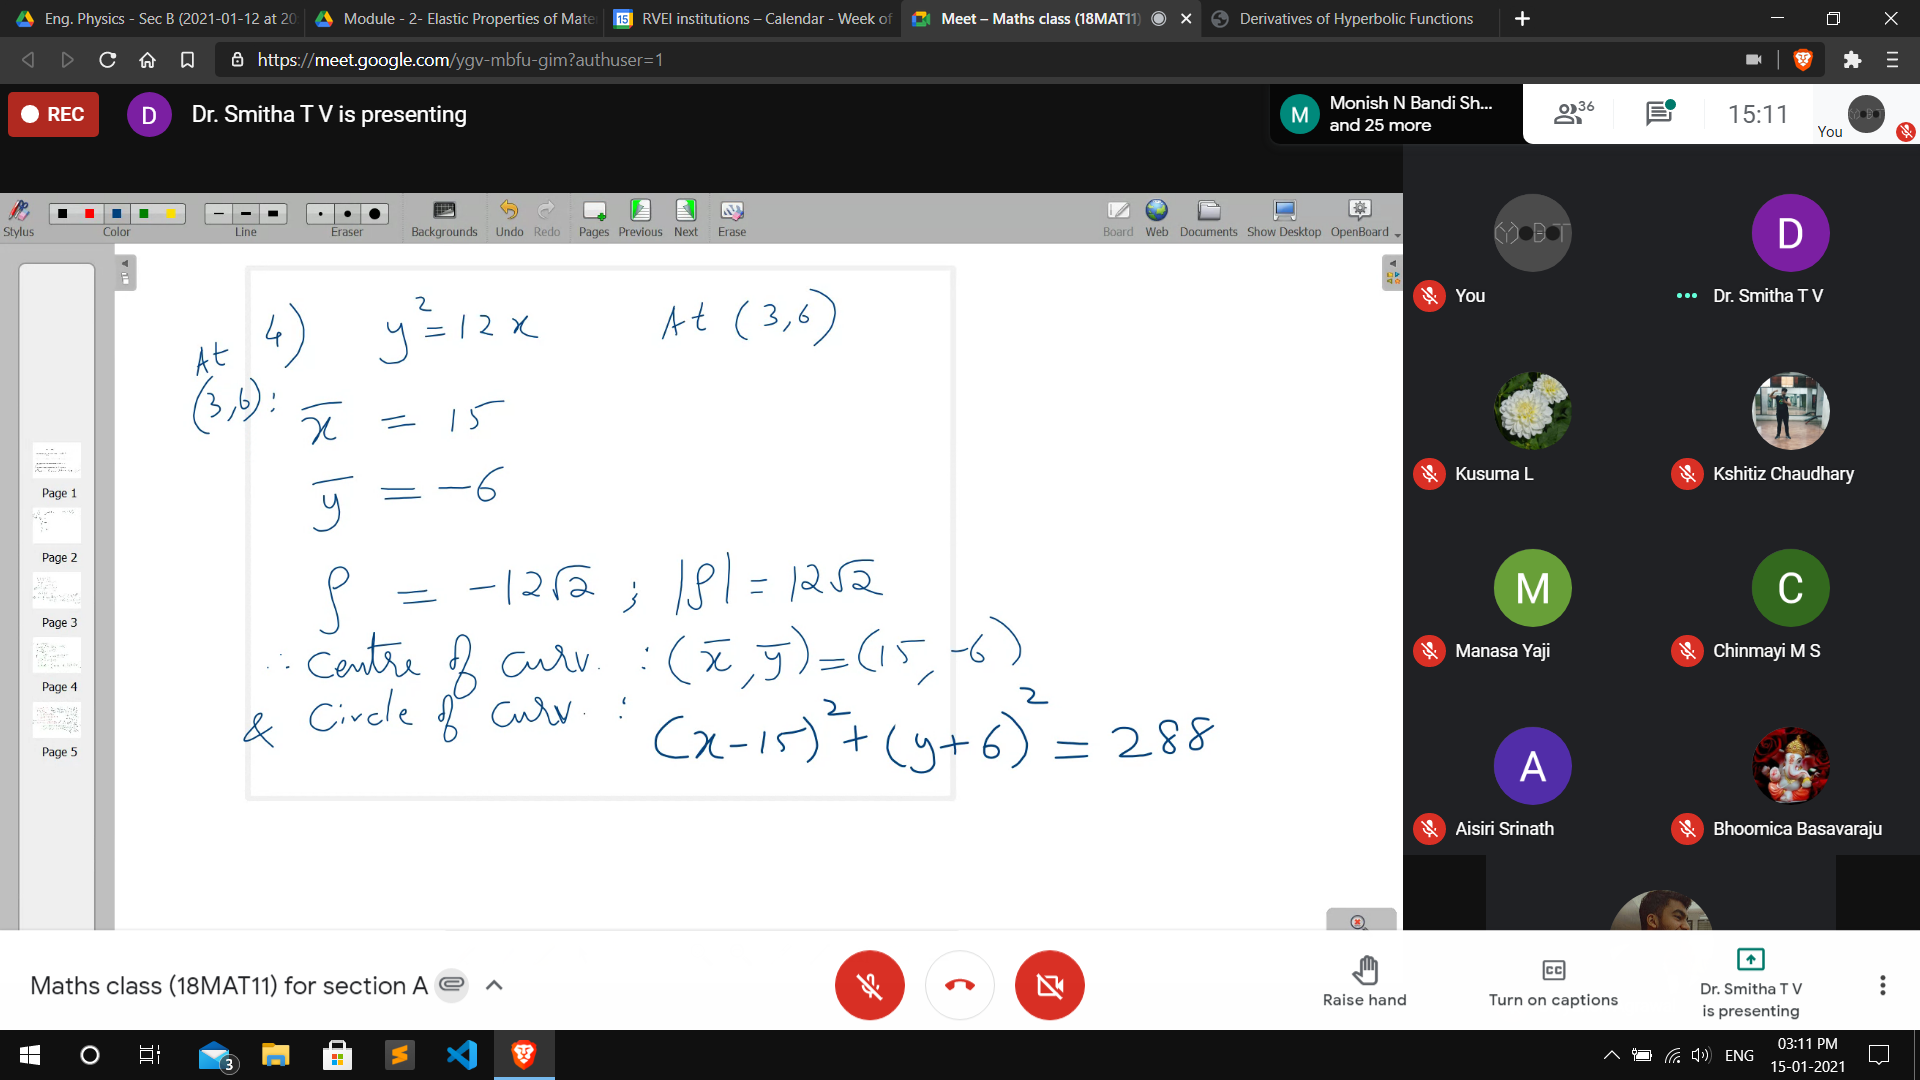 Eng. Physics - Sec B (2021-01-12 at 20
Module - 2- Elastic Properties of Mate
15 RVEI institutions – Calendar - Week of
Meet – Maths class (18MAT11)
Derivatives of Hyperbolic Functions
https://meet.google.com/ygv-mbfu-gim?authuser=1
REC
D
Dr. Smitha T V is presenting
M
Monish N Bandi Sh...
and 25 more
36
15:11
You
Stylus
Color
Line
Eraser
Backgrounds
Undo
Redo
Pages
Previous
Next
Erase
Board
Web
Documents
Show Desktop
OpenBoard
Page 1
Page 2
Page 3
Page 4
Page 5
4) y² = 12x At (3,6)
At (3,6):
x̄ = 15
ȳ = -6
ρ = -12√2 ; |ρ| = 12√2
∴ Centre of curv. : (x̄, ȳ) = (15, -6)
& Circle of curv. : (x-15)² + (y+6)² = 288
You
D
Dr. Smitha T V
Kusuma L
Kshitiz Chaudhary
M
Manasa Yaji
C
Chinmayi M S
A
Aisiri Srinath
Bhoomica Basavaraju
Maths class (18MAT11) for section A
Raise hand
Turn on captions
Dr. Smitha T V
is presenting
3
ENG
03:11 PM
15-01-2021